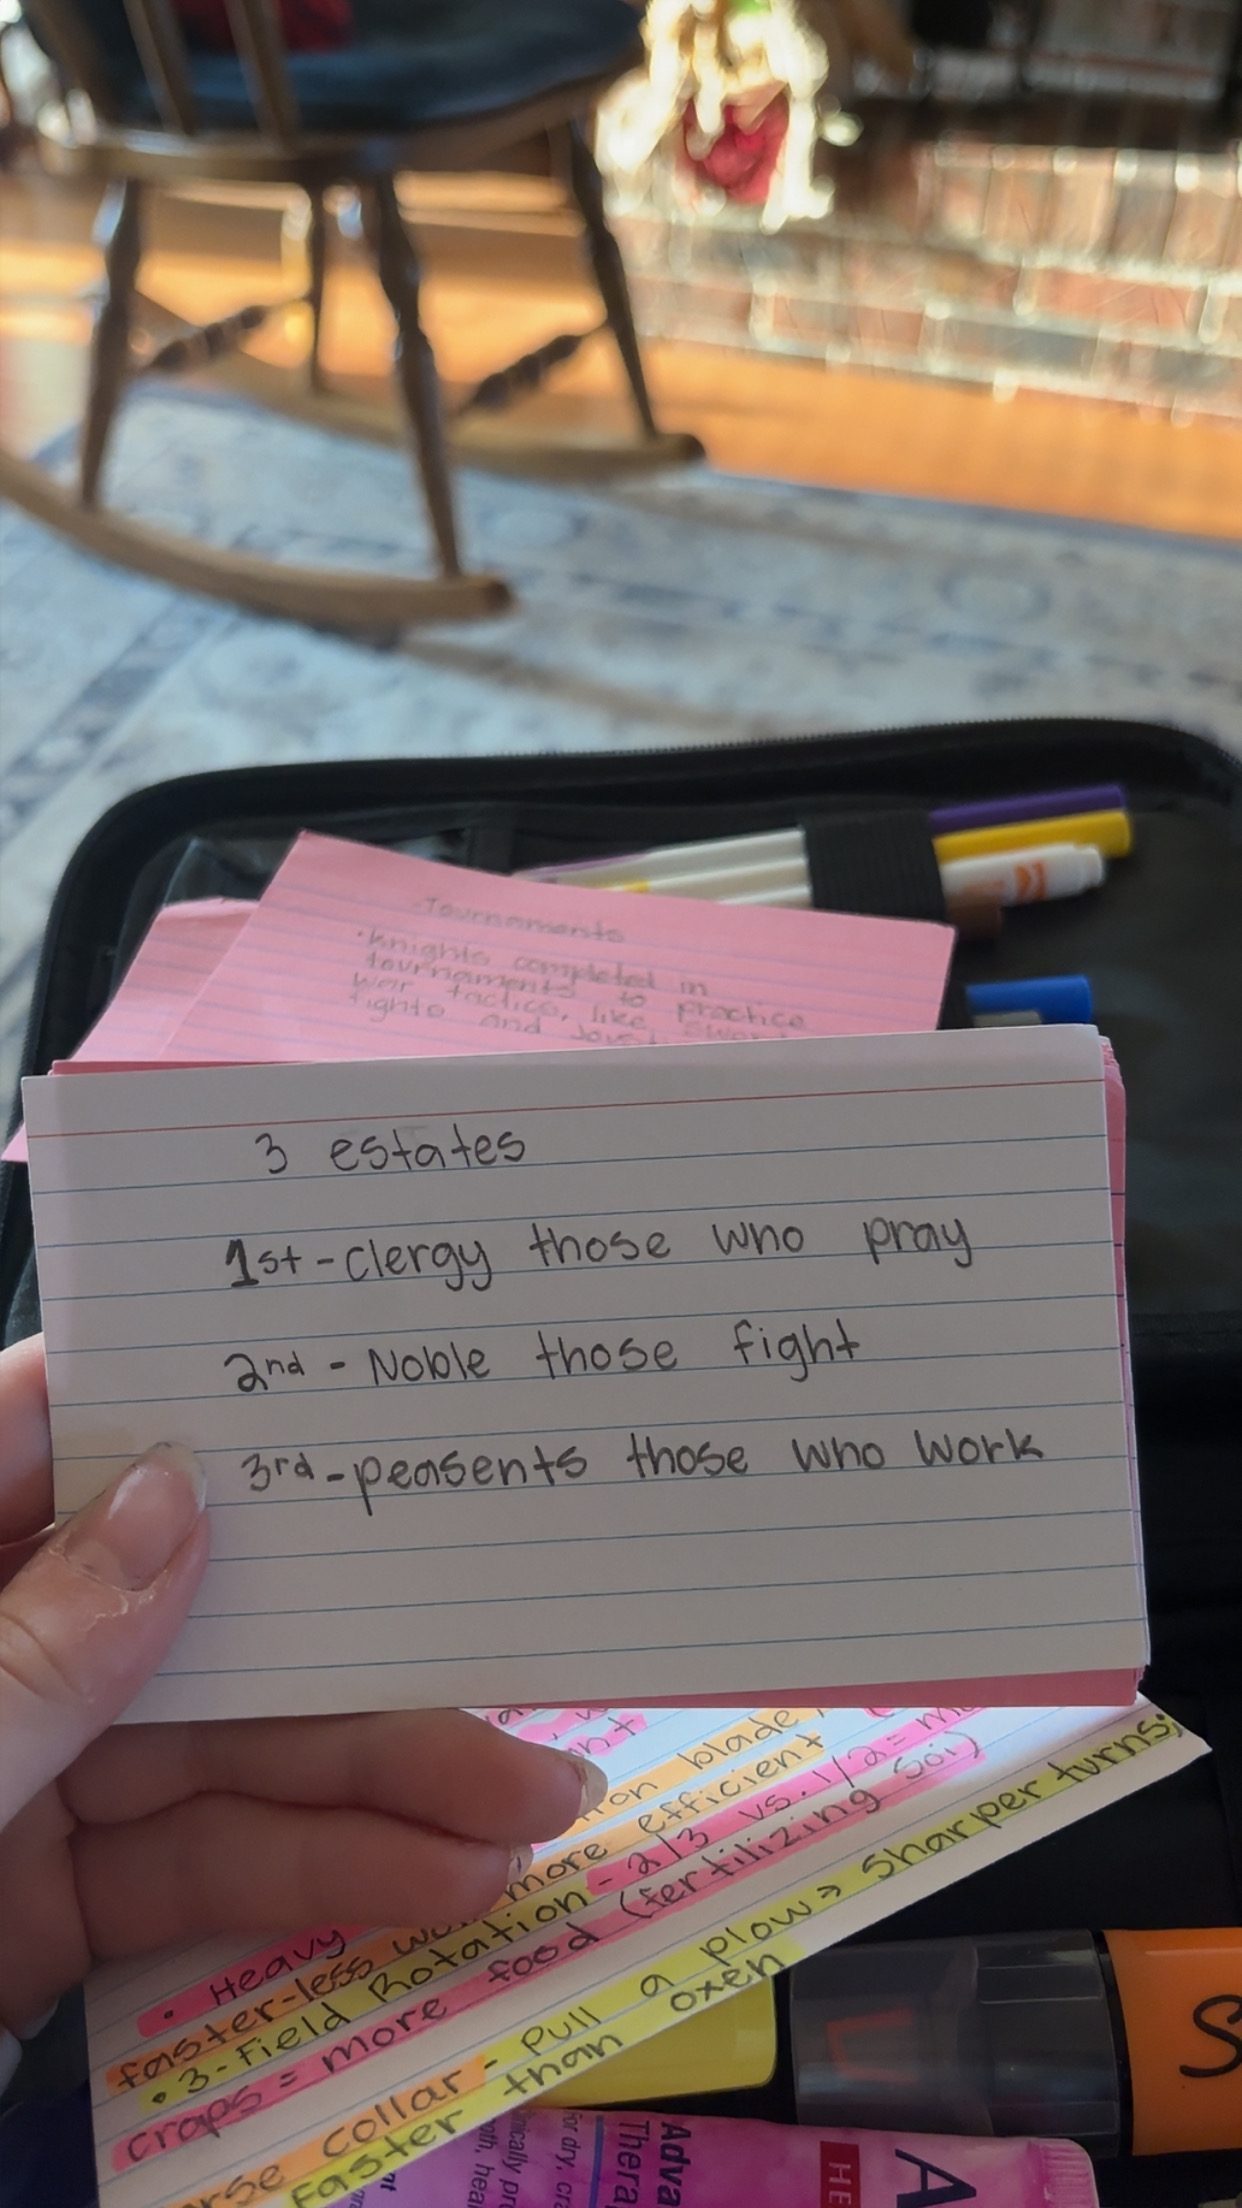 -Tournaments
•Knights completed in
tournaments to practice
war tactics, like sword
fights and
3 estates
1st-clergy those who pray
2nd - Noble those fight
3rd-peasents those who work
blade
• Heavy more efficient
faster-less
• 3-Field Rotation - 2/3 vs. 1/2 =
craps = more food (fertilizing soi)
collar - Pull a plow => Sharper turns;
Faster than oxen
S
Adva
Thera
for dry, cra
HE
A